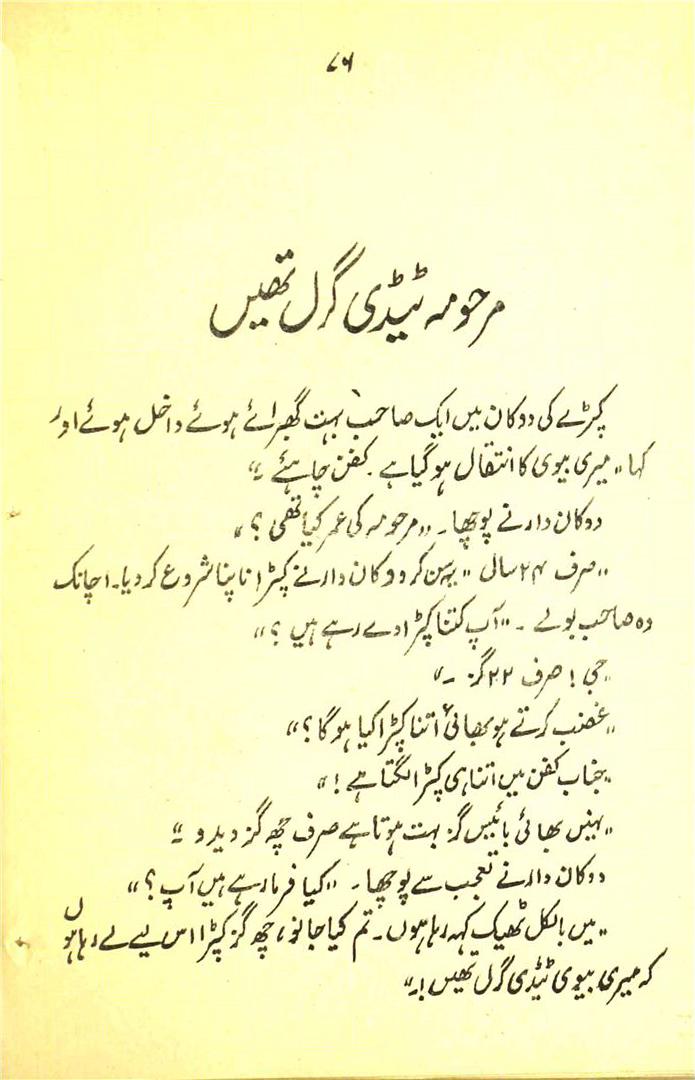 ۷۶
مرحومہ ٹیڈی گرل تھیں
کپڑے کی دوکان میں ایک صاحب بہت گھبرائے ہوئے داخل ہوئے اور
کہا "میری بیوی کا انتقال ہو گیا ہے۔ کفن چاہئے۔"
دوکان دار نے پوچھا۔ "مرحومہ کی عمر کیا تھی؟"
"صرف ۲۴ سال" یہ سن کر دوکان دار نے کپڑا ناپنا شروع کر دیا۔ اچانک
وہ صاحب بولے۔ "آپ کتنا کپڑا دے رہے ہیں؟"
"جی! صرف ۲۲ گز۔"
"غضب کرتے ہو بھائی اتنا کپڑا کیا ہوگا؟"
"جناب کفن میں اتنا ہی کپڑا لگتا ہے!"
"نہیں بھائی بائیس گز بہت ہوتا ہے صرف چھ گز دیدو۔"
دوکان دار نے تعجب سے پوچھا۔ "کیا فرما رہے ہیں آپ؟"
"میں بالکل ٹھیک کہہ رہا ہوں۔ تم کیا جانو، چھ گز کپڑا اس لیے لے رہا ہوں
کہ میری بیوی ٹیڈی گرل تھیں!۔"